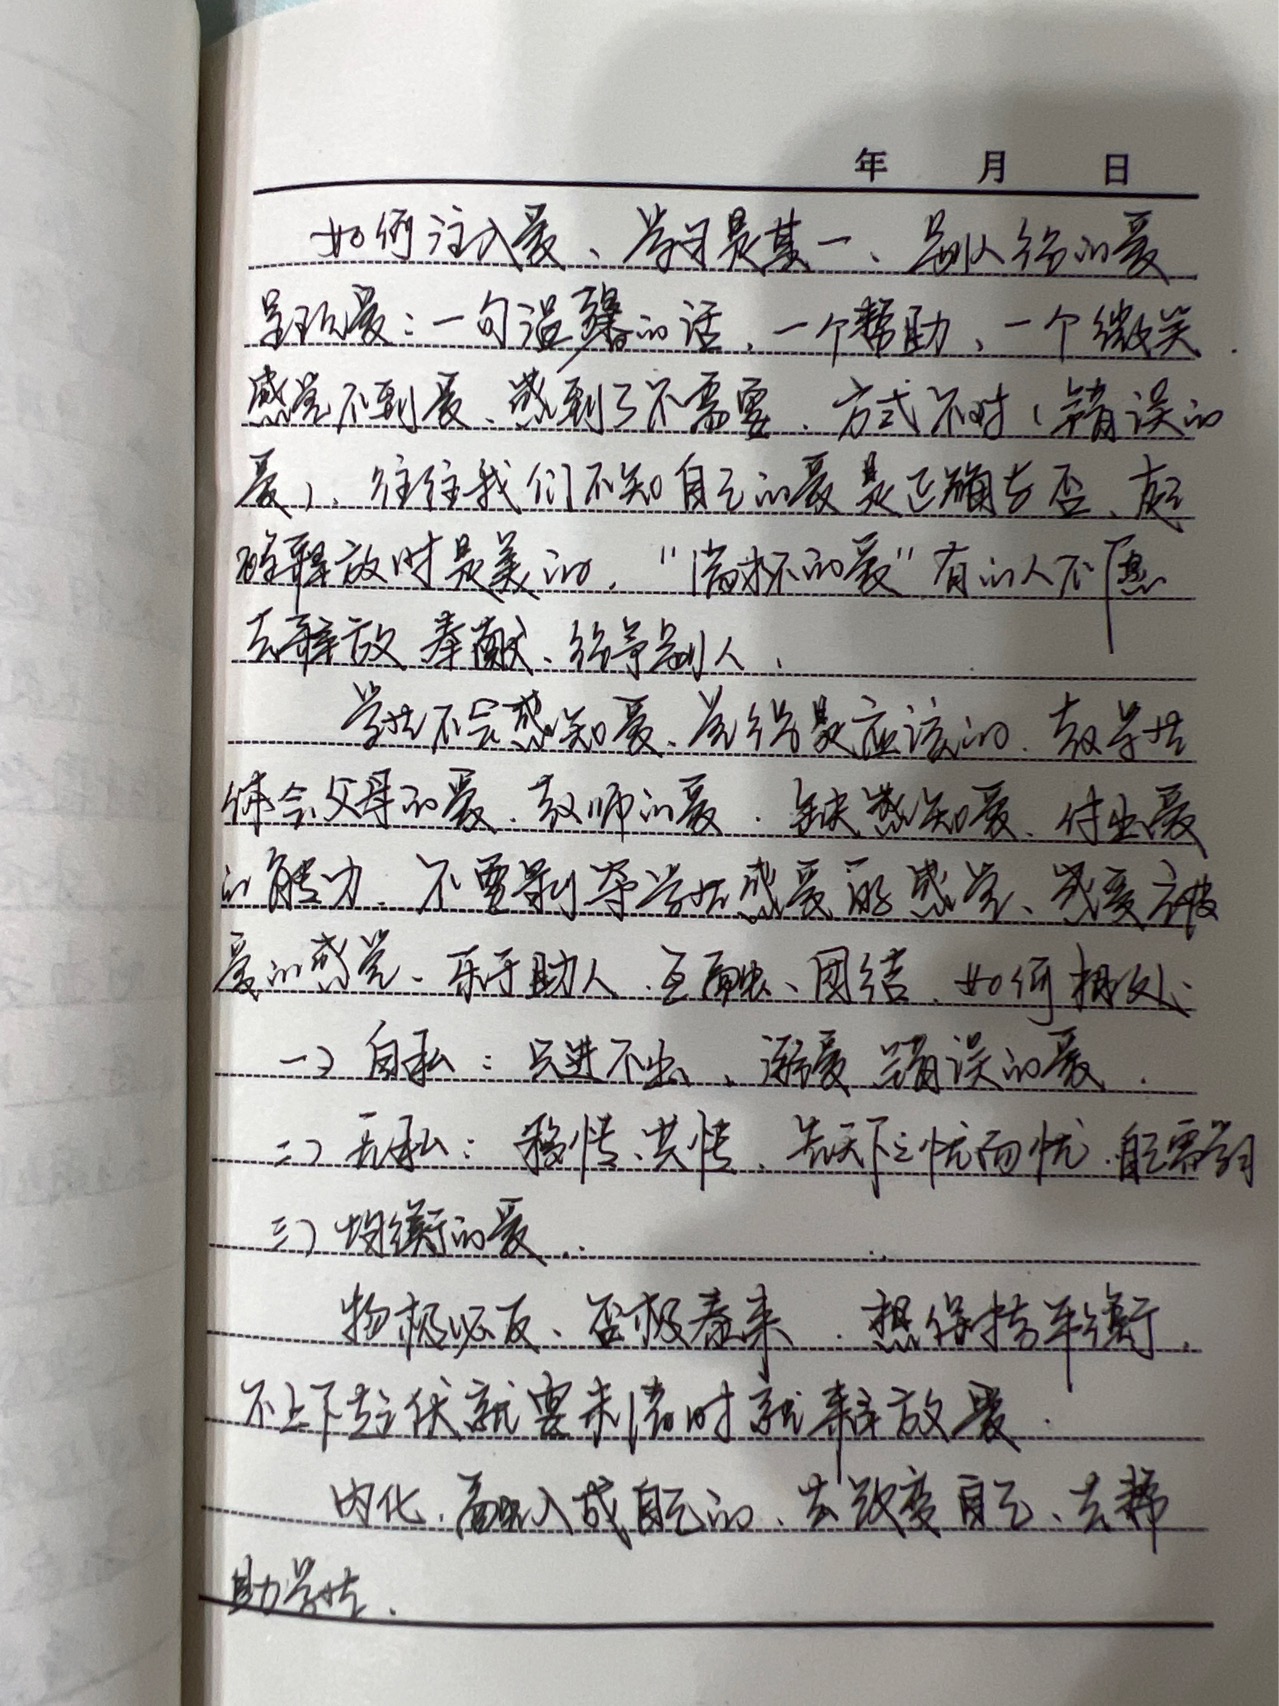 年 月 日
如何注入爱、学习是其一、别人给的爱
呈现爱：一句温馨的话、一个帮助、一个微笑.
感觉不到爱、感到了不需要、方式不对（错误的
爱）、往往我们不知自己的爱是正确与否、
释放时是美的，“满杯的爱”有的人不愿
去释放 奉献、给予别人.
学生不会感知爱、觉得是应该的、教学生
体会父母的爱、教师的爱. 缺失感知爱、付出爱
的能力、不要剥夺学生感受爱的感觉、感受被
爱的感觉、乐于助人、互融、团结、如何相处、
一）自私：只进不出、溺爱 是错误的爱.
二）无私：移情、共情、先天下之忧而忧、自己需要
三）均衡的爱.
物极必反、否极泰来. 想保持平衡，
不上下起伏就要未满时就释放爱.
内化、融入成自己的、去改变自己、去帮
助学生.